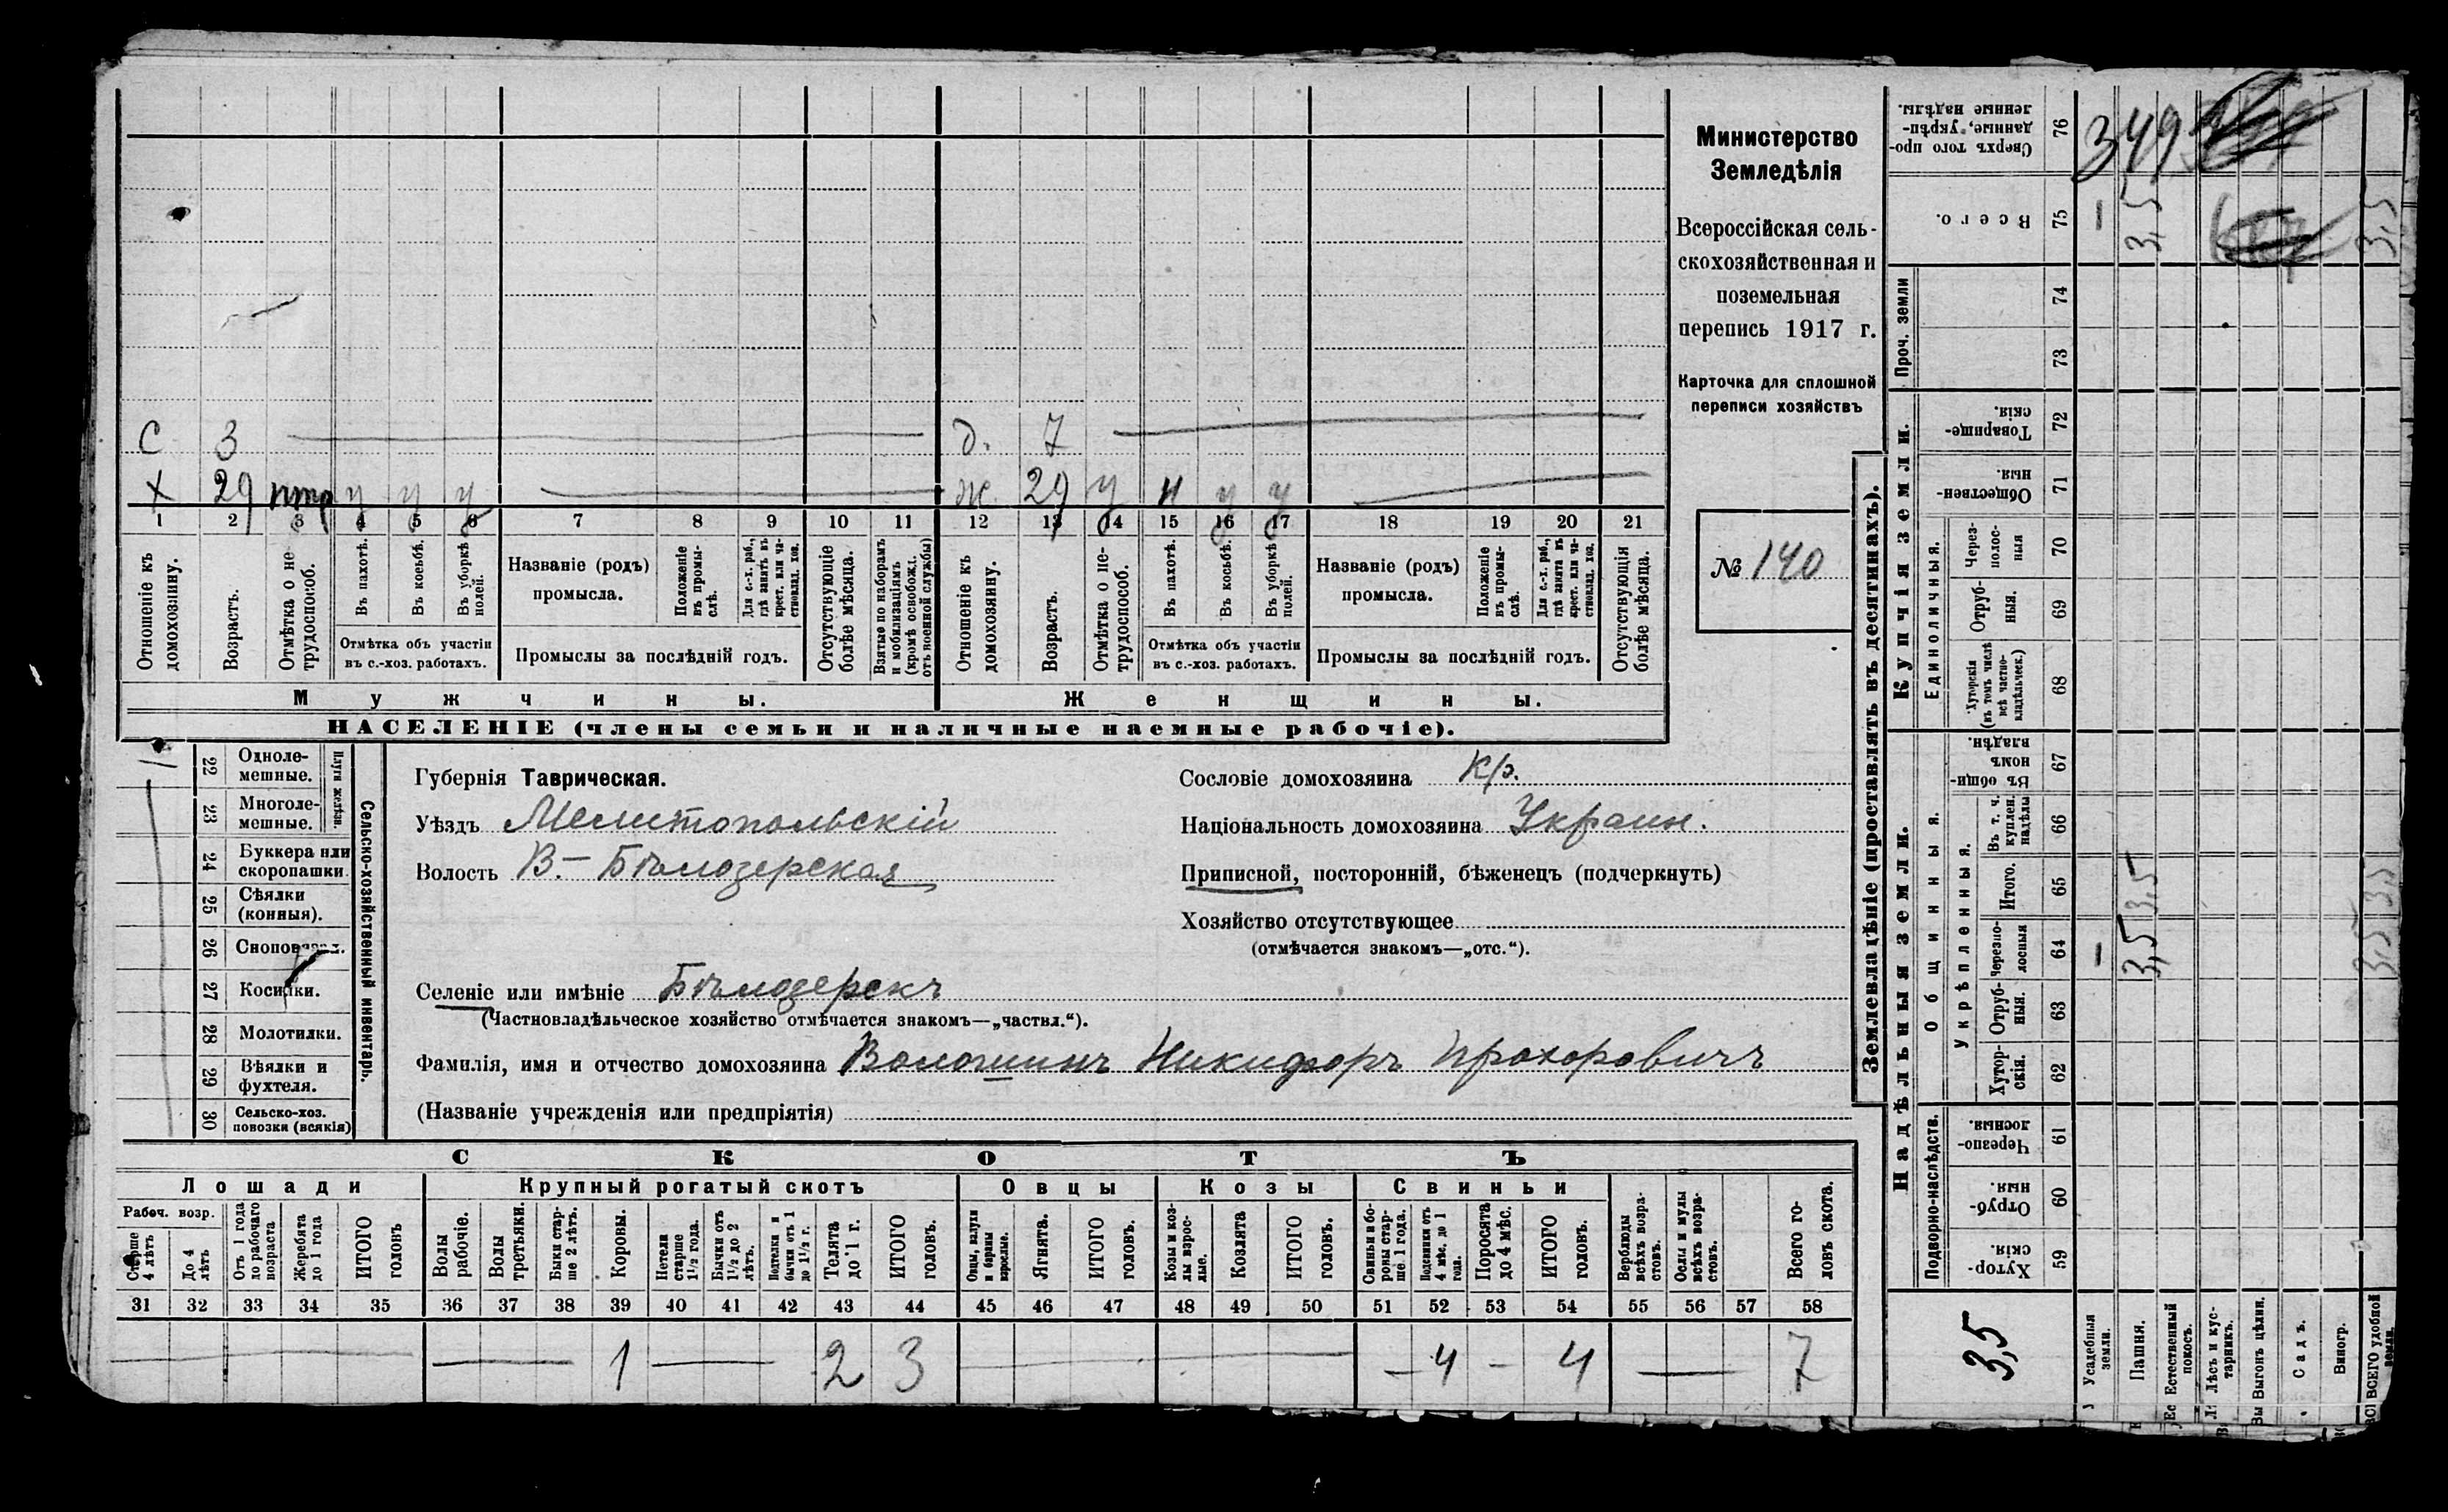 Министерство
Земледѣлія
Всероссійская сель-
скохозяйственная и
поземельная
перепись 1917 г.
Карточка для сплошной
переписи хозяйствъ
№ 140
С 3 д. 7
Х 29 у у у ж. 29 у н у у
1 2 3 4 5 6 7 8 9 10 11 12 13 14 15 16 17 18 19 20 21
Отношеніе къ домохозяину.
Возрастъ.
Отмѣтка о не трудоспособ.
Въ пахотѣ.
Въ косьбѣ.
Въ уборкѣ полей.
Отмѣтка объ участіи
въ с.-хоз. работахъ.
Названіе (родъ)
промысла.
Положеніе въ промы-слѣ.
Для с.-х. раб., гдѣ занятъ въ крест. или ча-стновлад. хоз.
Промыслы за послѣдній годъ.
Отсутствующіе болѣе мѣсяца.
Взятые по наборамъ и мобилизаціямъ (кромѣ освобожд. отъ военной службы)
Отношеніе къ домохозяину.
Возрастъ.
Отмѣтка о не-трудоспособ.
Въ пахотѣ.
Въ косьбѣ.
Въ уборкѣ полей.
Отмѣтка объ участіи
въ с.-хоз. работахъ.
Названіе (родъ)
промысла.
Положеніе въ промы-слѣ.
Для с.-х. раб., гдѣ занята въ крест. или ча-стновлад. хоз.
Промыслы за послѣдній годъ.
Отсутствующія болѣе мѣсяца.
Мужчины.
Женщины.
НАСЕЛЕНІЕ (члены семьи и наличные наемные рабочіе).
22 Одноле-мешные.
23 Многоле-мешные.
Плуги желѣзн.
24 Буккера или скоропашки
25 Сѣялки (конныя).
26
27 Косилки.
28 Молотилки.
29 Вѣялки и фухтеля.
30 Сельско-хоз. повозки (всякія)
Сельско-хозяйственный инвентарь.
Губернія Таврическая.
Уѣздъ Мелитопольскій
Волость В.-Бѣлозерская
Сословіе домохозяина Кр.
Національность домохозяина Украин.
Приписной, посторонній, бѣженецъ (подчеркнуть)
Хозяйство отсутствующее
(отмѣчается знакомъ—„отс.“).
Селеніе или имѣніе Бѣлозерскъ
(Частновладѣльческое хозяйство отмѣчается знакомъ—„частвл.“).
Фамилія, имя и отчество домохозяина Волошинъ Никифоръ Прохоровичъ
(Названіе учрежденія или предпріятія)
СКОТЪ
Лошади Крупный рогатый скотъ Овцы Козы Свиньи
Рабоч. возр.
Старше 4 лѣтъ
До 4 лѣтъ
Отъ 1 года до рабочаго возраста
Жеребята до 1 года
ИТОГО головъ
Волы рабочіе.
Волы третьяки.
Быки стар-ше 2 лѣтъ.
Коровы.
Нетели старше 1½ года.
Бычки отъ 1½ до 2 лѣтъ.
Подтелки и бычки отъ 1 до 1½ г.
Телята до 1 г.
ИТОГО головъ.
Овцы, валухи и бараны взрослые.
Ягнята.
ИТОГО головъ.
Козы и коз-лы взрос-лые.
Козлята
ИТОГО головъ.
Свиньи и бо-ровы стар-ше 1 года.
Подсвинки отъ 4 мѣс. до 1 года.
Поросята до 4 мѣс.
ИТОГО головъ.
Верблюды всѣхъ возра-стовъ.
Ослы и мулы всѣхъ возра-стовъ.
Всего го-ловъ скота.
31 32 33 34 35 36 37 38 39 40 41 42 43 44 45 46 47 48 49 50 51 52 53 54 55 56 57 58
— — 1 — 2 3 — — 4 — 4 — 7
Землевладѣніе (проставлять въ десятинахъ).
Купчія земли.
Надѣльныя земли.
Проч. земли
Единоличныя.
Общинныя.
Укрѣпленныя.
Подворно-наслѣдств.
76 Сверхъ того про-данные, укрѣп-ленные надѣлы. 349
75 Всего. — 3,5 3,5
74
73
72 Товарище-скія.
71 Обществен-ныя
70 Через-полос-ныя
69 Отруб-ныя.
68 Хуторскія (въ томъ числѣ всѣ частно-владѣльческ.)
67 Въ общи-номъ владѣн.
66 Въ т. ч. куплен. надѣлы
65 Итого. 3,5 3,5
64 Черезпо-лосныя — 3,5 3,5
63 Отруб-ныя.
62 Хутор-скія.
61 Черезпо-лосныя.
60 Отруб-ныя.
59 Хутор-скія.
3,5
Усадебныя земли.
Пашня.
Естественный покосъ.
Лѣсъ и кус-тарникъ.
Выгонъ цѣлин.
Садъ.
Виногр.
ВСЕГО удобной земли.